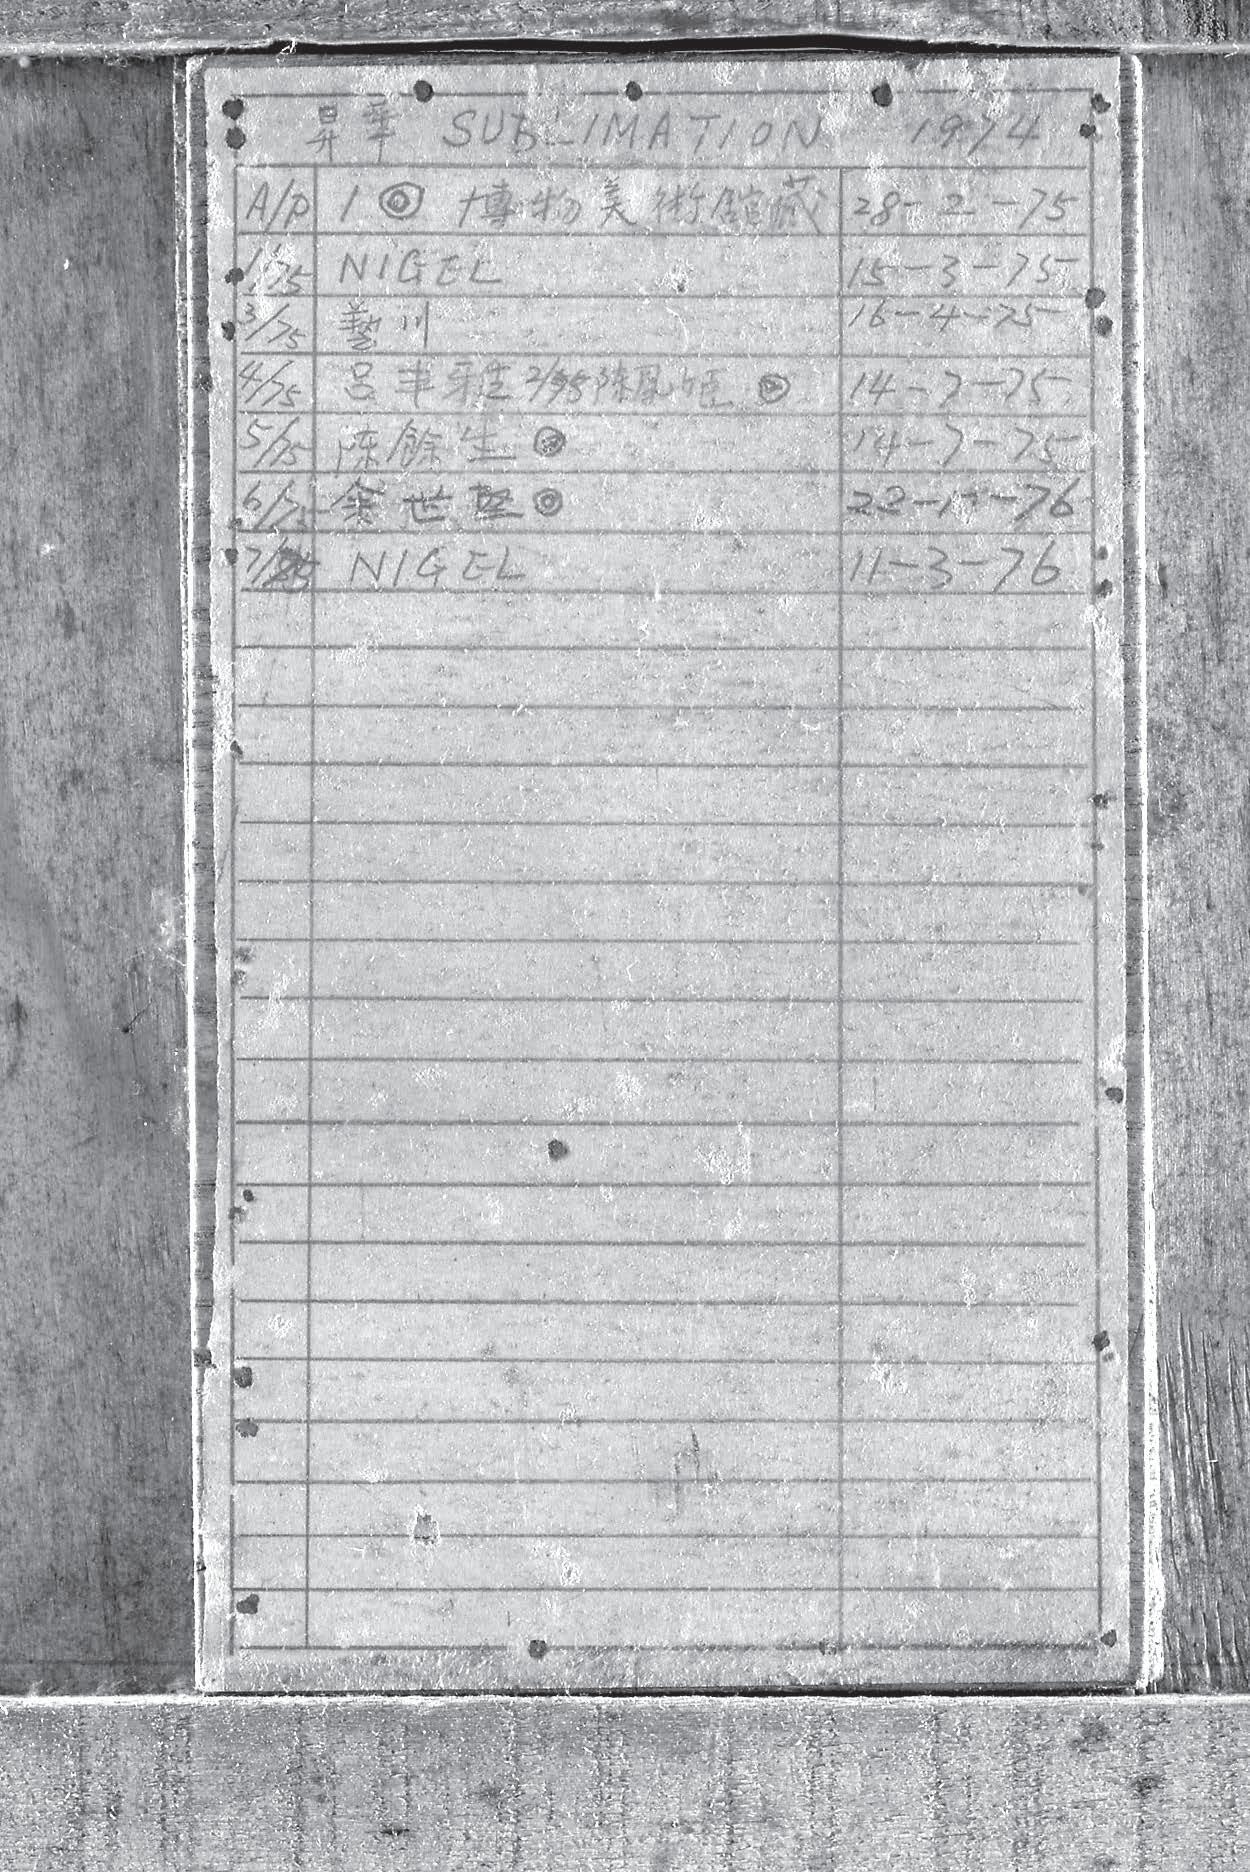 昇華 SUBLIMATION 1974
A/P 1 ◎ 博物美術館藏 28-2-75
1/75 NIGEL 15-3-75
3/75 藝川 16-4-75
4/75 呂丰雅 2/75 陳鳳 ◎ 14-7-75
5/75 陈餘生 ◎ 14-7-75
6/75 世堅 ◎ 22-1-76
7/75 NIGEL 11-3-76